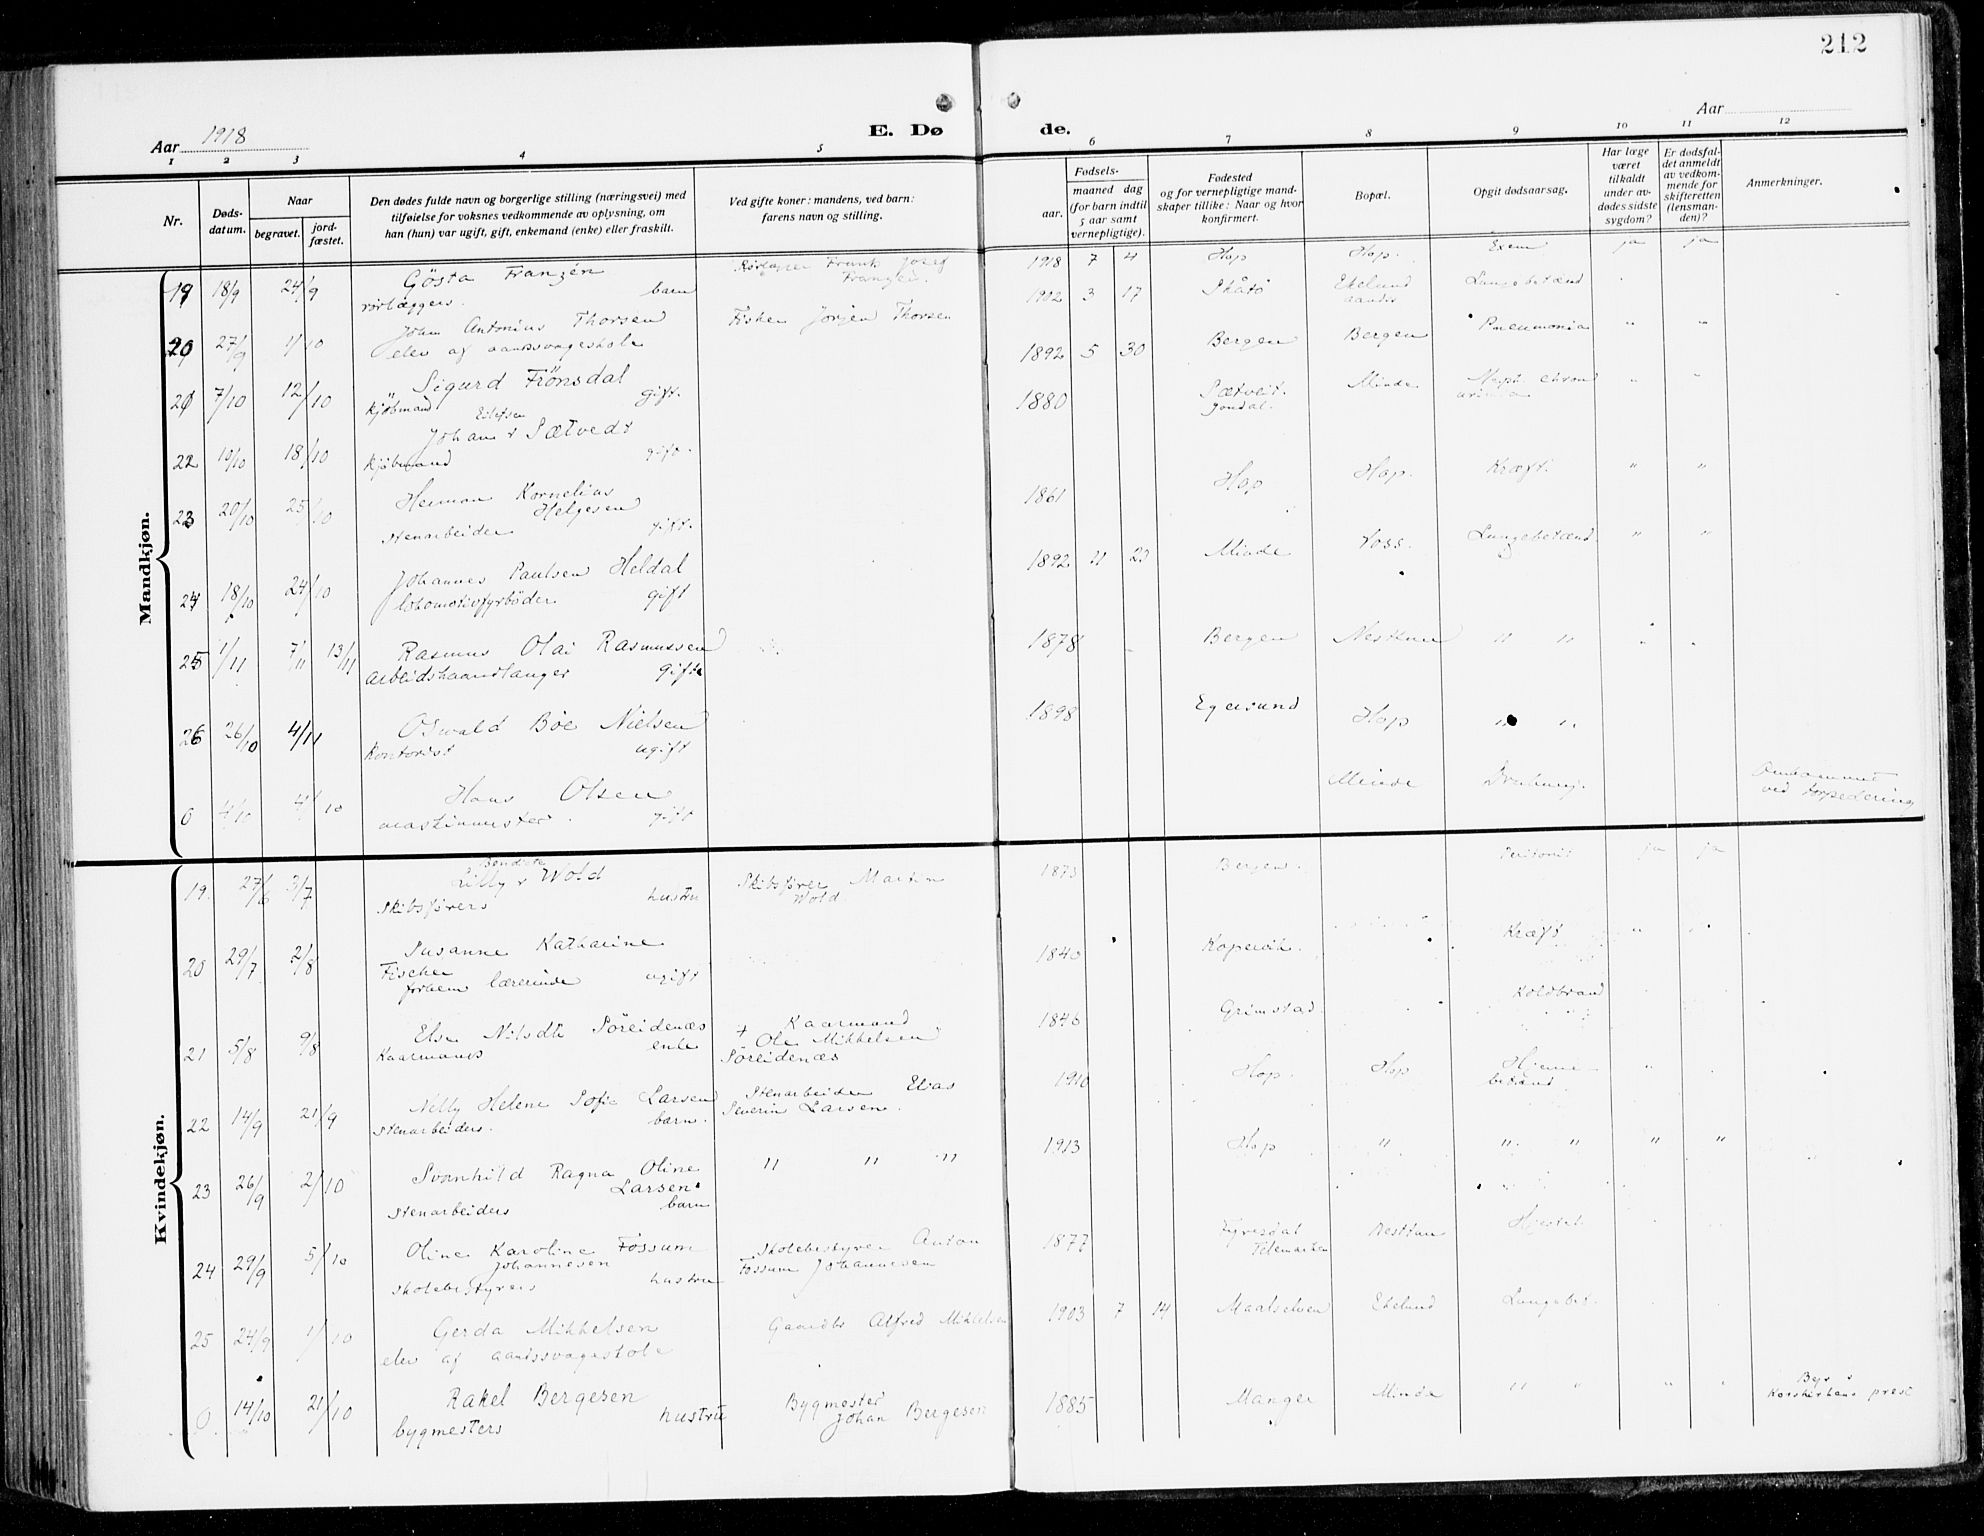 212
Aar 1918
E. Dø
de.
Aar
1 2 3 4 5 6 7 8 9 10 11 12
Nr.
Døds-
datum.
Naar
begravet.
jord-
fæstet.
Den dødes fulde navn og borgerlige stilling (næringsvei) med
tilføielse for voksnes vedkommende av oplysning, om
han (hun) var ugift, gift, enkemand (enke) eller fraskilt.
Ved gifte koner: mandens, ved barn:
farens navn og stilling.
Fødsels-
aar.
maaned dag
(for barn indtil
5 aar samt
vernepligtige).
Fødested
og for vernepligtige mand-
skaper tillike: Naar og hvor
konfirmert.
Bopæl.
Opgit dødsaarsag.
Har læge
været
tilkaldt
under av-
dødes sidste
sygdom?
Er dødsfal-
det anmeldt
av vedkom-
mende for
skifteretten
(lensman-
den)?
Anmerkninger.
Mandkjøn.
19 18/9 24/9 Gösta Franzén Frank Josef 1918 7 4 Hop Hop. Exem ja ja
rørlæggers. barn Franzén.
20 27/9 1/10 Johan Antonius Thorsen Fisker Jørgen Thorsen 1902 3 17 Skåtø Ekelund Lungebetænd
elev af aandssvageskole
21 7/10 12/10 Sigurd Frönsdal 1892 5 30 Bergen Bergen Pneumonia " "
kjöbmand gift.
22 10/10 18/10 Johan Sætvedt 1880 Sætveit. Minde " "
Eilefsen
kjöbmand gift. Jondal.
23 20/10 25/10 Herman Kornelius 1861 Hop Hop. Kræft. " "
Helgesen
stenarbeider gift.
24 18/10 24/10 Johannes Paulsen Heldal 1892 11 23 Minde Voss. Lungebetænd. " "
lokomotivfyrbøder gift
25 1/11 7/11 13/11 Rasmus Olai Rasmussen 1878 Bergen Nesttun " "
arbeidshaandlanger gift
26 26/10 4/11 Oswald Böe Nielsen 1898 Egersund Hop " "
Kontorist ugift
0 4/10 4/10 Hans Olsen Minde Omkommet
maskinmester. gift ved torpedering
Kvindekjøn.
19. 27/6 3/7 Lilly Wold Skibsfører Martin 1873 Bergen. Peritonit ja ja
Bendicte
Skibsførers hustru Wold.
20 29/7 2/8 Susanne Katharine 1840 Kopervik. Kræft "
Fischer
forhem lærerinde ugift
21 5/8 9/8 Else Nilsdtr Söreidenæs + Kaarmand 1846 Grimstad Koldbrand
Kaarmands enke Ole Mikkelsen
Söreidenæs
22 14/9 21/9 Nelly Helene Sofie Larsen Stenarbeider Elias 1910 Hop. Hop Hjerne- "
stenarbeiders. barn. Severin Larsen. betænd.
23 26/9 2/10 Svanhild Ragna Oline " " " 1913 Hop " " " " "
Larsen
stenarbeiders barn
24 29/9 5/10 Oline Karoline Fossum Skolebestyrer Anton 1877 Fyresdal Nesttun
Johannesen Fossum Johannesen Telemarken
skolebestyrers hustru
25 24/9 1/10 Gerda Mikkelsen Alfred Mikkelsen 1903 7 14 Maalselven Ekelund Lungebet.
elev af aandssvageskole
0 14/10 21/10 Rakel Bergesen Bygmester 1885 Manger Minde " " " "
bygmesters hustru Johan Bergesen Korskirkens prest